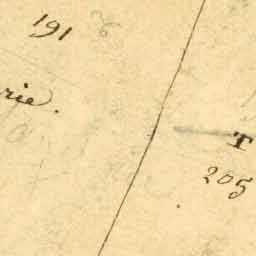 191
rie.
T
205